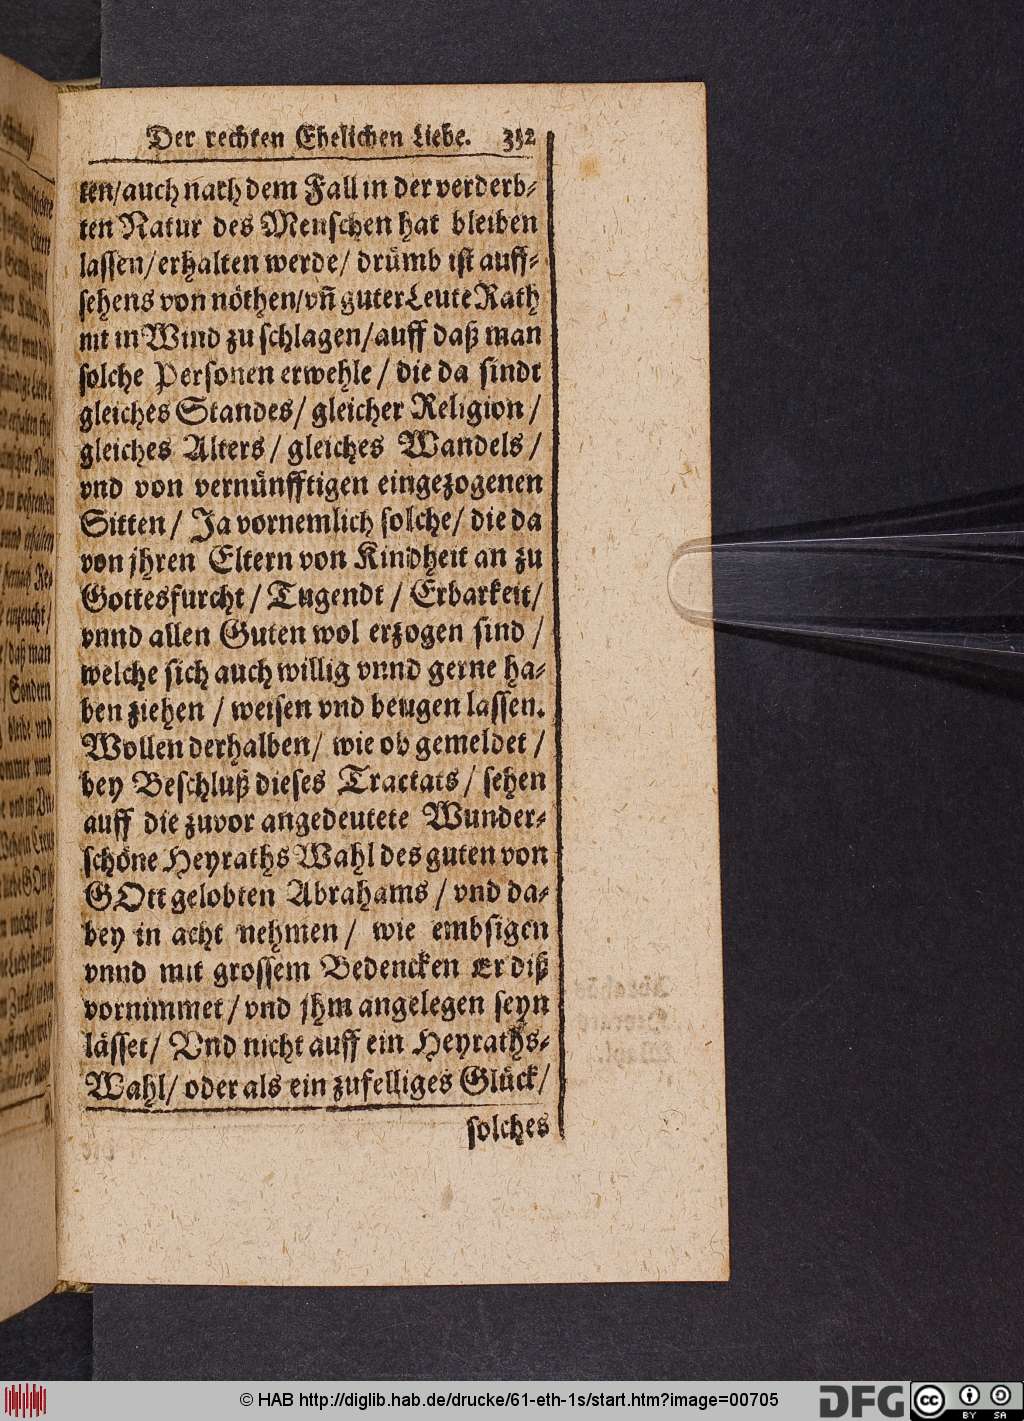 Der rechten Ehelichen Liebe. 352
ten/auch nach dem Fall in der verderb-
ten Natur des Menschen hat bleiben
lassen/erhalten werde/ drümb ist auff-
sehens von nöthen/vñ guter Leute Rath
nit in Wind zu schlagen/auff daß man
solche Personen erwehle / die da sindt
gleiches Standes/ gleicher Religion /
gleiches Alters / gleiches Wandels /
vnd von vernünfftigen eingezogenen
Sitten / Ja vornemlich solche/ die da
von jhren Eltern von Kindheit an zu
Gottesfurcht / Tugendt / Erbarkeit/
vnnd allen Guten wol erzogen sind /
welche sich auch willig vnnd gerne ha-
ben ziehen / weisen vnd beugen lassen.
Wollen derhalben/ wie ob gemeldet /
bey Beschluß dieses Tractats / sehen
auff die zuvor angedeutete Wunder-
schöne Heyraths Wahl des guten von
GOtt gelobten Abrahams / vnd da-
bey in acht nehmen / wie embsigen
vnnd mit grossem Bedencken Er diß
vornimmet / vnd jhm angelegen seyn
lässet/ Vnd nicht auff ein Heyraths-
Wahl/ oder als ein zufelliges Glück/
solches
© HAB http://diglib.hab.de/drucke/61-eth-1s/start.htm?image=00705
DFG
cc BY SA